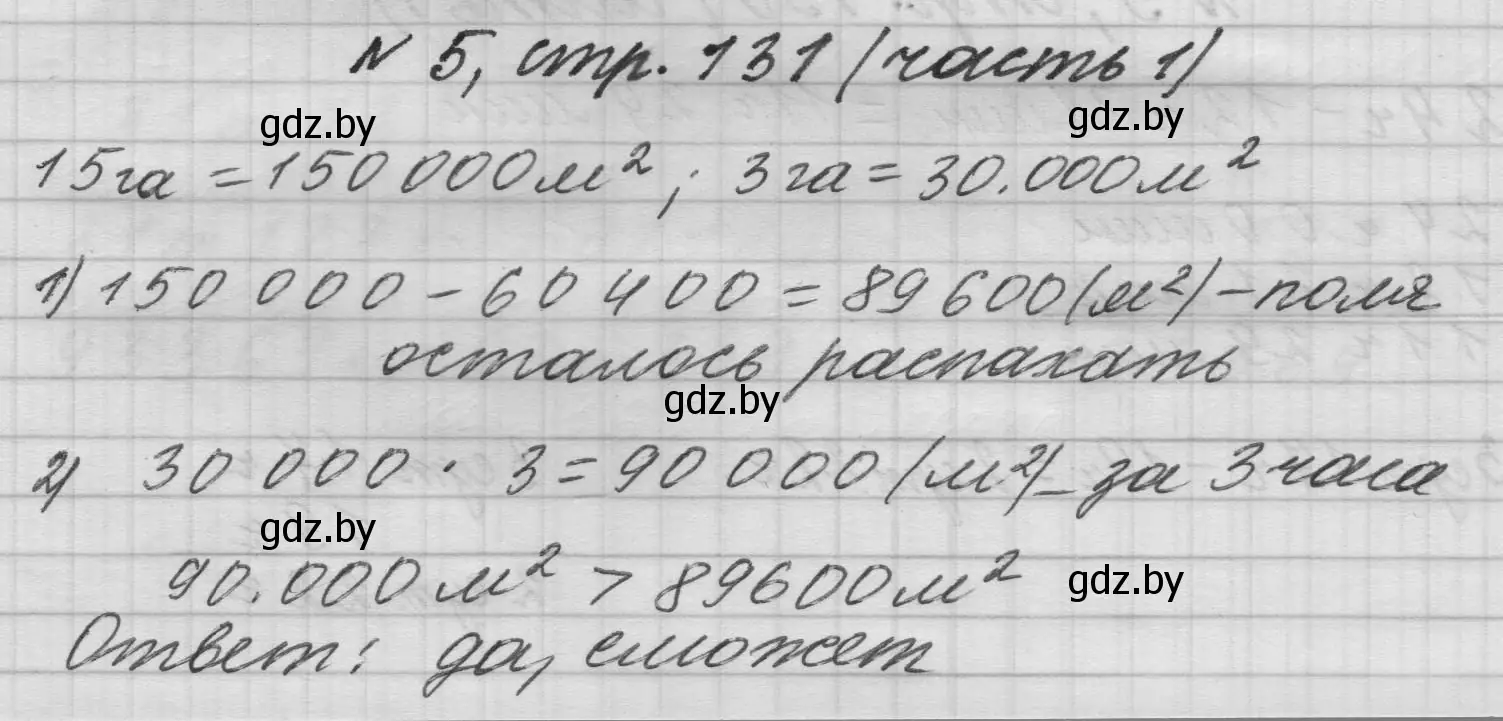 N 5, стр. 131 (часть 1)
gdz.by gdz.by
15га = 150 000 м²; 3 га = 30.000 м²
1) 150 000 - 60 400 = 89 600 (м²) - поля
осталось распахать
gdz.by
2) 30 000 · 3 = 90 000 (м²) - за 3 часа
gdz.by
90.000 м² > 89600 м² gdz.by
Ответ: да, сможет